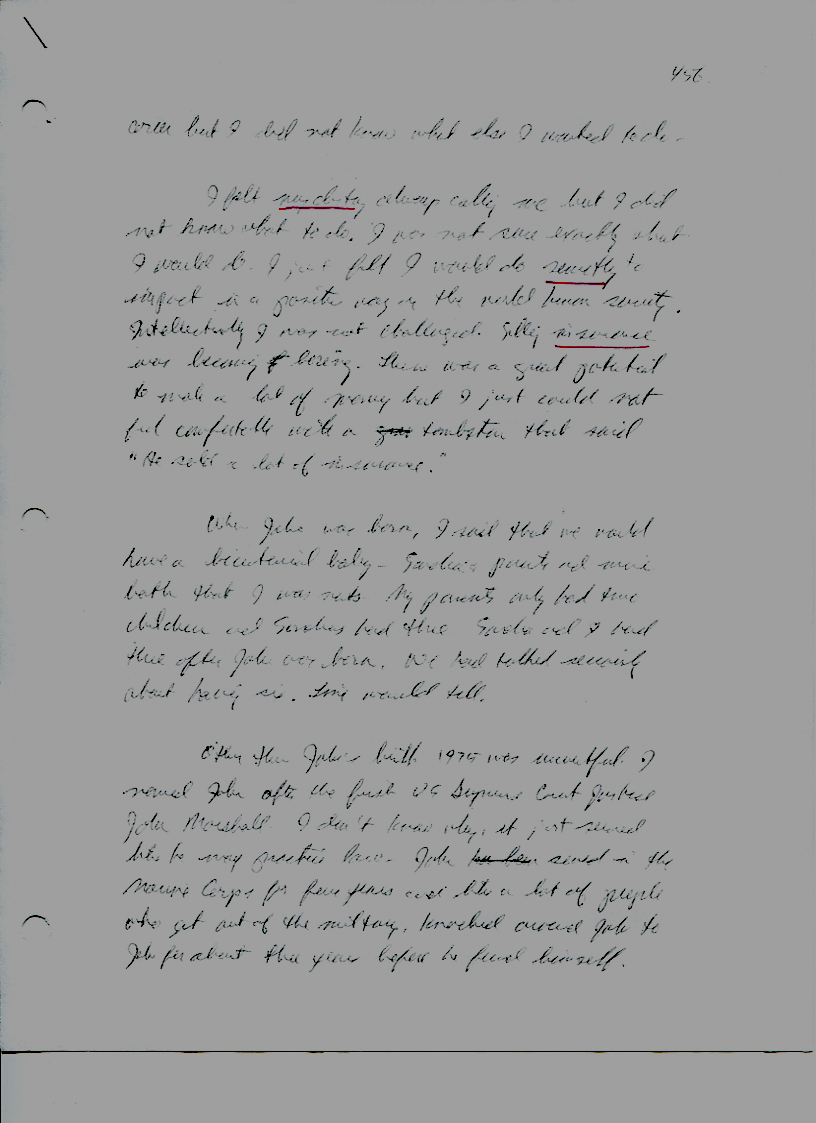 456.
but I did not know what else I wanted to do.
I felt always calling me but I did
not know what to do. I was not sure exactly what
I would do. I just felt I would do to
impact in a positive way in the world human society.
Intellectually I was not challenged. Selling insurance
was becoming boring. There was a great potential
to make a lot of money but I just could not
feel comfortable with a tombstone that said
"He sold a lot of insurance."
When John was born, I said that we would
have a bicentennial baby - parents and mine
both that I was nuts. My parents only had two
children and had three. and I had
three after John was born. We had talked seriously
about having six. Time would tell.
Other than John's birth 1975 was uneventful. I
named John after the first US Supreme Court Justice
John Marshall. I don't know why, it just seemed
like he may practice law. John served in the
Marine Corps for four years and like a lot of people
who get out of the military, knocked around job to
job for about three years before he found himself.